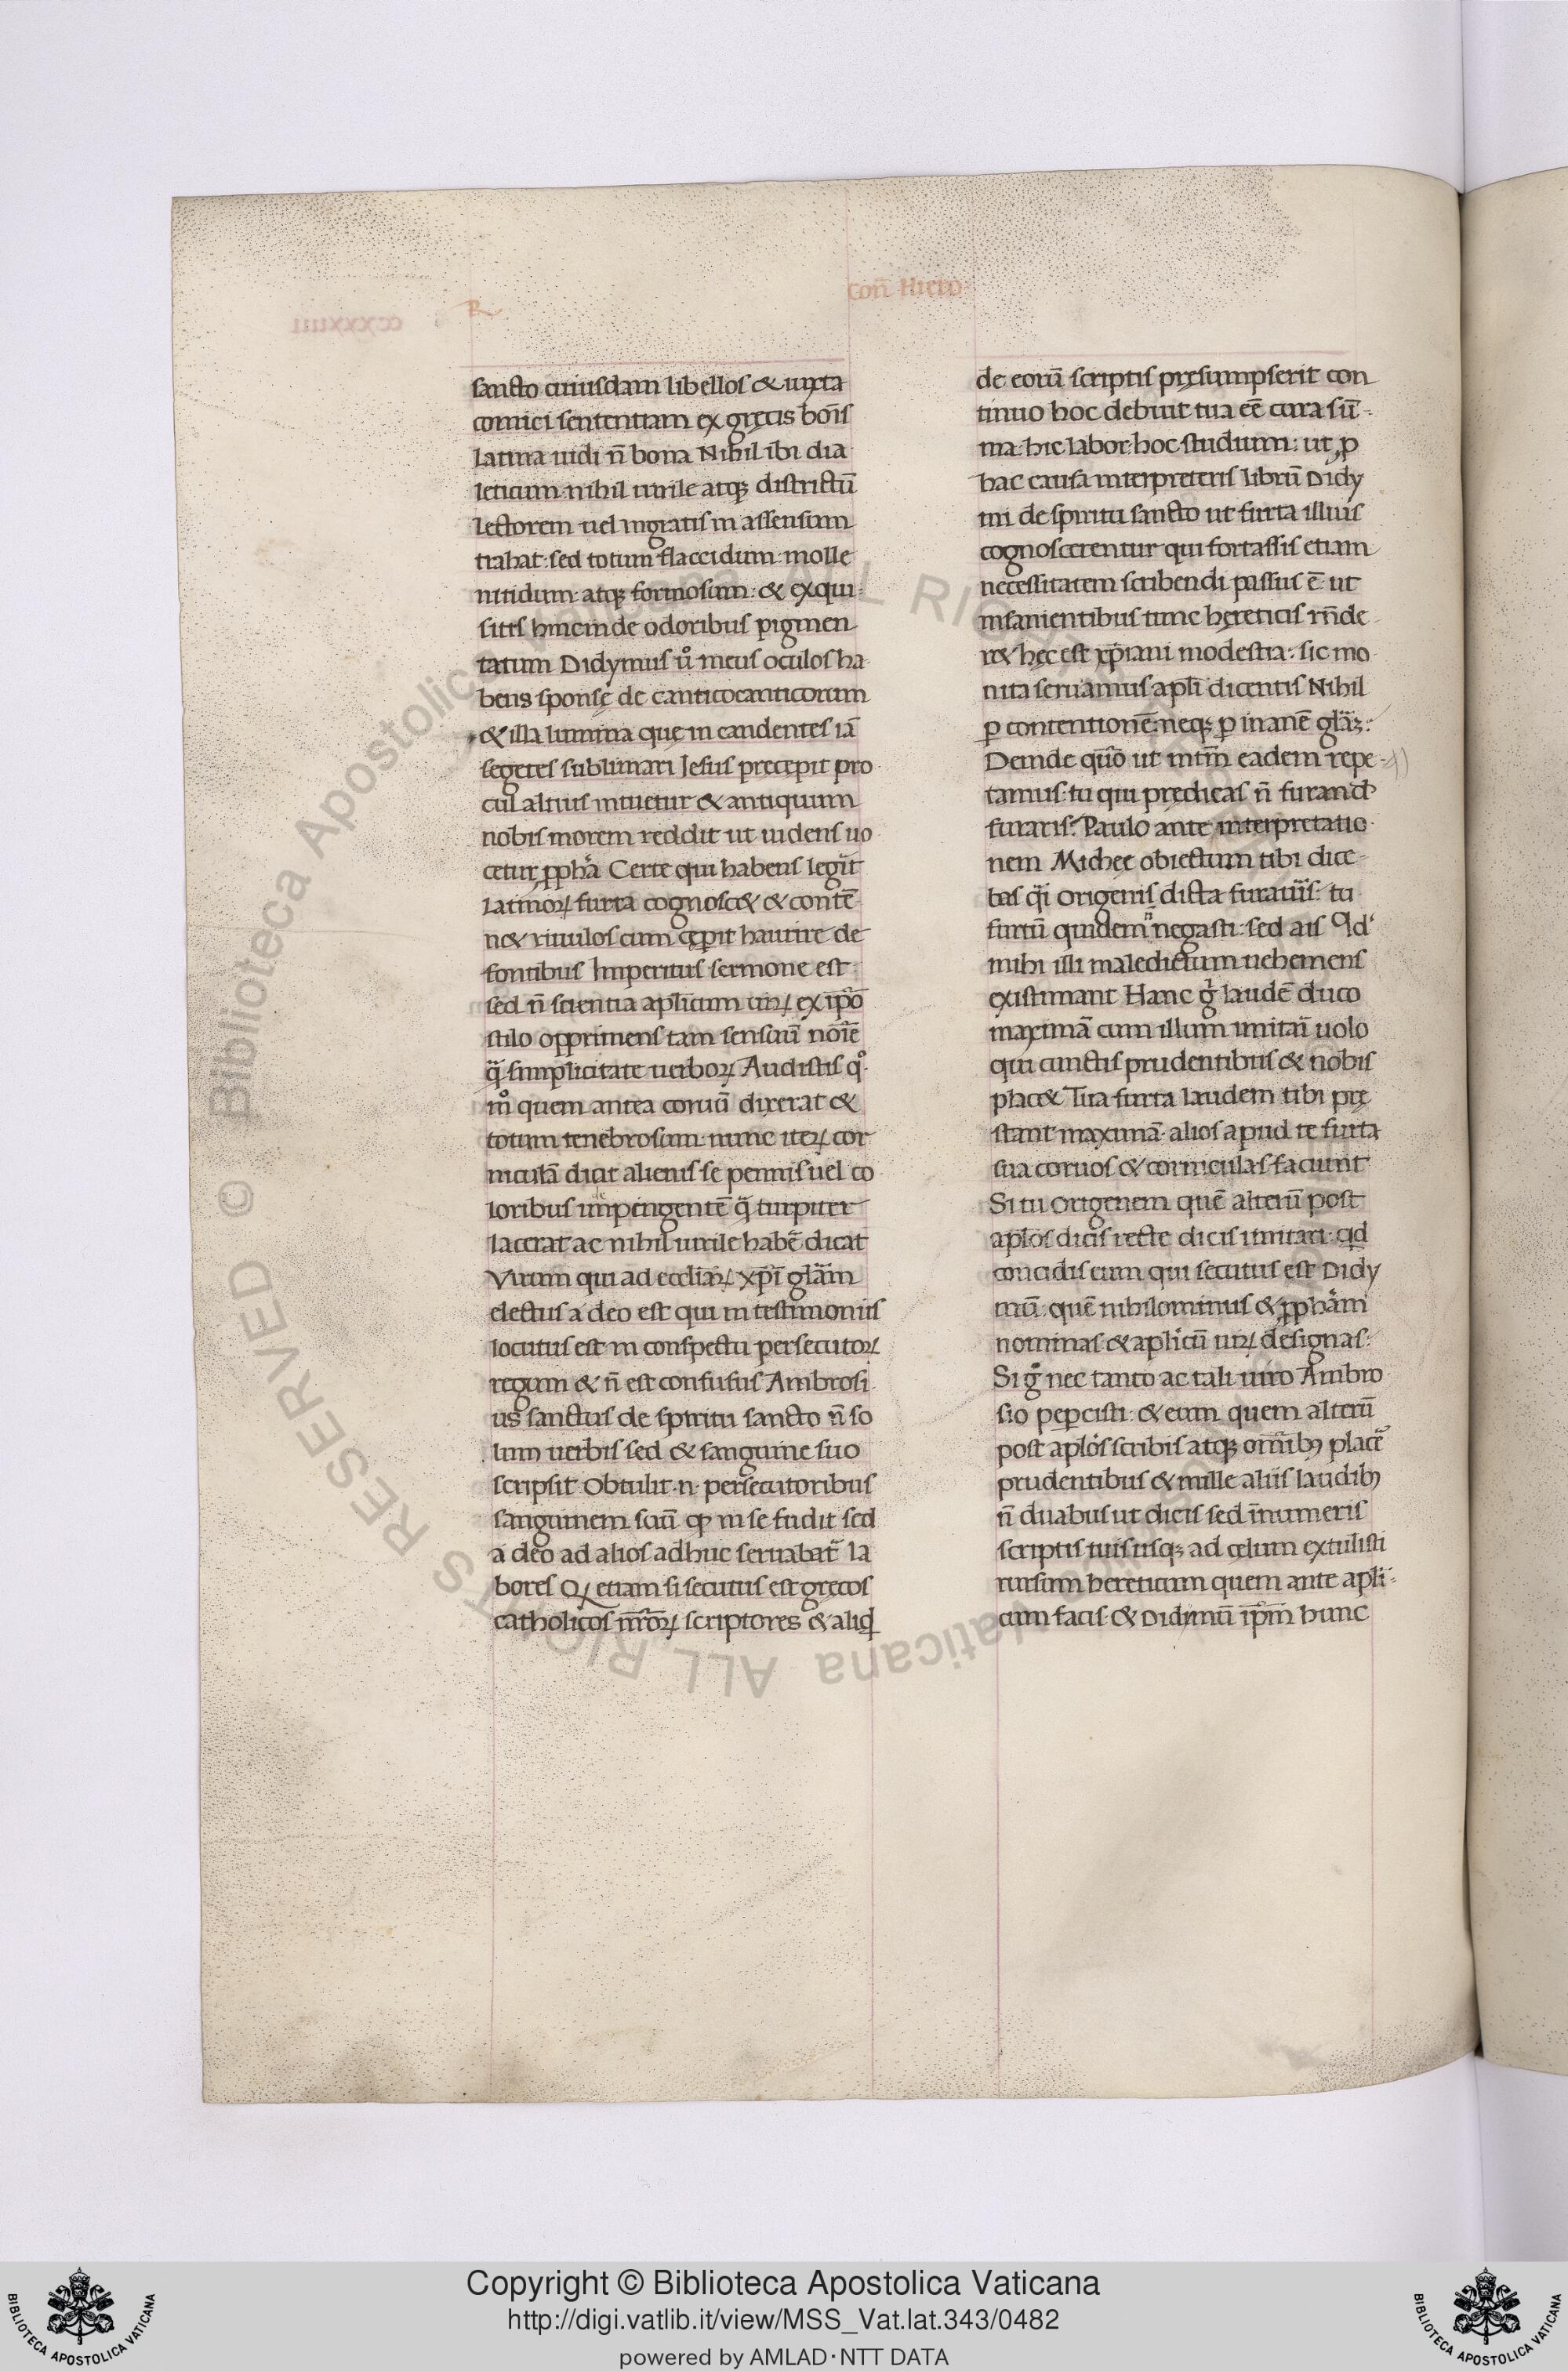 R
Con̄ Hiero
ccxxxiiii
sancto cuiusdam libellos & iuxta
comici sententiam ex gręcis bonis
latina uidi n̄ bona Nihil ibi dia
leticum nihil uirile atq; districtū
lectorem uel ingratis in assensum
trahat: sed totum flaccidum molle
nitidum atq; formosum: & exqui
sitis hincinde odoribus pigmen
tatum Didymus ů meus oculos ha
bens sponsę de canticocanticorum
& illa lumina quę in candentes iā
segetes sublimari Iesus precepit pro
cul altius intuetur & antiquum
nobis morem reddit ut uidens uo
cetur ꝓpha Certe qui habens legit
latinoꝝ furta cognosc& & contē
n& riuulos cum cęperit haurire de
fontibus Imperitus sermone est
sed n̄ scientia aplicum uiꝝ ex ip̄o
stilo opprimens tam sensuū noīe
q̄ simplicitate uerboꝝ Audistis qº
mº quem antea coruū dixerat &
totum tenebrosum nunc iteꝝ cor
niculā dicit alienis se pennis uel co
loribus impingentē q̄ turpiter
lacerat ac nihil uirile habē dicat
Virum qui ad ecclīaꝝ xp̄i glām
electus a deo est qui in testimoniis
locutus est in conspectu persecutoꝝ
regum & n̄ est confusus Ambrosi
us sanctus de spiritu sancto n̄ so
lum uerbis sed & sanguine suo
scripsit Obtulit .n. persecutoribus
sanguinem suū qͥ in se fudit sed
a deo ad alios adhuc seruabat̄ la
bores Qꝝ etiam si secutus est gręcos
catholicos nr̄oꝝ scriptores & aliqd
de eorū scriptis pręsumpserit con
tinuo hoc debuit tua eē cura sū
ma: hic labor: hoc studium: ut ꝓ
hac causa interpreteris librū Didy
mi de spiritu sancto ut furta illius
cognoscerentur qui fortassis etiam
necessitatem scribendi passus ē ut
insanientibus tunc hęreticis rn̄de
r& hęc est xp̄iani modestia: sic mo
nita seruamus apl̄i dicentis Nihil
ꝑ contentionē: neq; ꝑ inanē glāꝫ:
Deinde qm̄o ut int̄m eadem repe
tamus: tu qui prędicas n̄ furand
furaris? Paulo ante interpretatio
nem Michęe obiectum tibi dice
bas qͥ Origenis dicta furaūis: tu
furtū quidem n̄ negasti: sed ais Qd
mihi illi maledictum uehemens
existimant Hanc g̊ laudē duco
maximā cum illum imitari uolo
qui cunctis prudentibus & nobis
plac& Tua furta laudem tibi prę
stant maximā alios apud te furta
sua coruos & corniculas faciunt
Si tu Origenem quē alterū post
aplos dicis recte dicis imitari: qd
concidis eum qui secutus est Didy
mū: quē nihilominus & ꝓpham
nominas & aplicū uiꝝ designas:
Si g̊ nec tanto ac tali uiro Ambro
sio pepercisti: & eum quem alterū
post aplos scribis atq; omnibꝰ placē
prudentibus & mille aliis laudibꝰ
n̄ duabus ut dicis sed īnumeris
scriptis tuis usq; ad cęlum extulisti
rursum hereticum quem ante apli
cum facis & Didimū ip̄m hunc
© Biblioteca Apostolica Vaticana ALL RIGHTS RESERVED
Copyright © Biblioteca Apostolica Vaticana
http://digi.vatlib.it/view/MSS_Vat.lat.343/0482
powered by AMLAD·NTT DATA
BIBLIOTECA APOSTOLICA VATICANA
BIBLIOTECA APOSTOLICA VATICANA